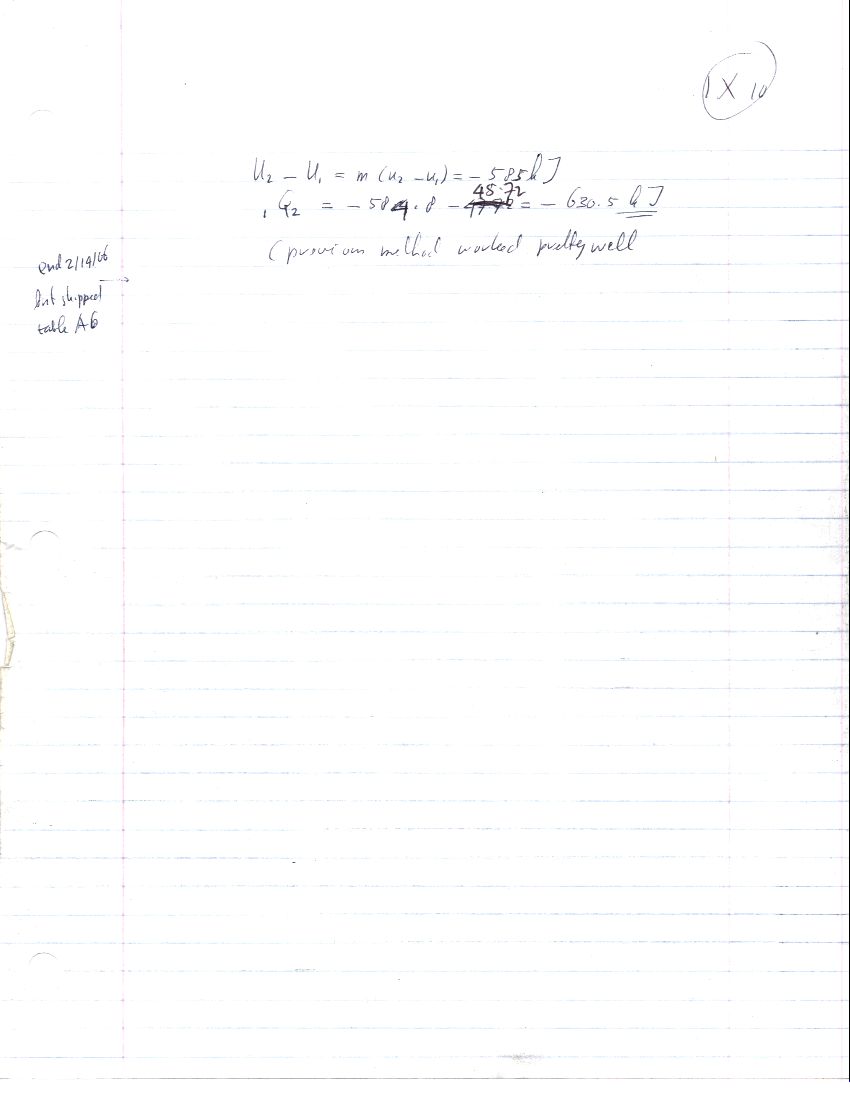 1X 10
U₂ - U₁ = m (u₂ - u₁) = - 585 kJ
48.72
₁Q₂ = - 584.8 - = - 630.5 kJ
(previous method worked pretty well
end 2/14/06
but skipped
table A6